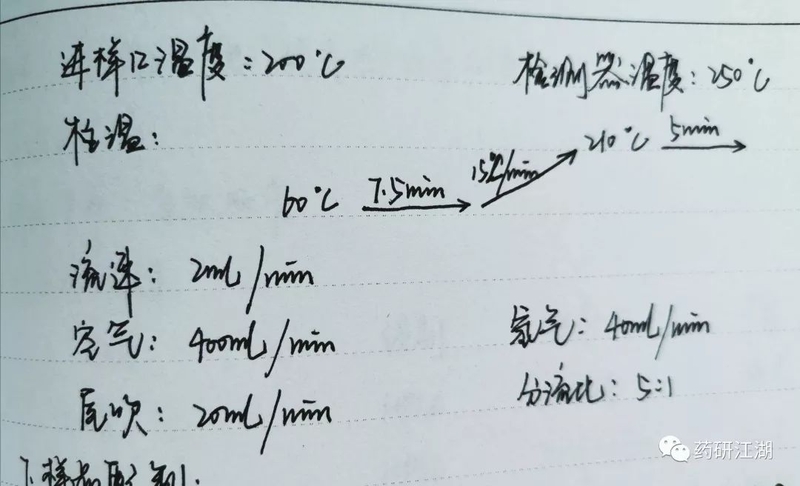 进样口温度：200℃ 检测器温度：250℃
柱温：
60℃ 7.5min 15℃/min 210℃ 5min
流速：2mL/min
空气：400mL/min 氢气：40mL/min
尾吹：20mL/min 分流比：5:1
样品配制：
药研江湖